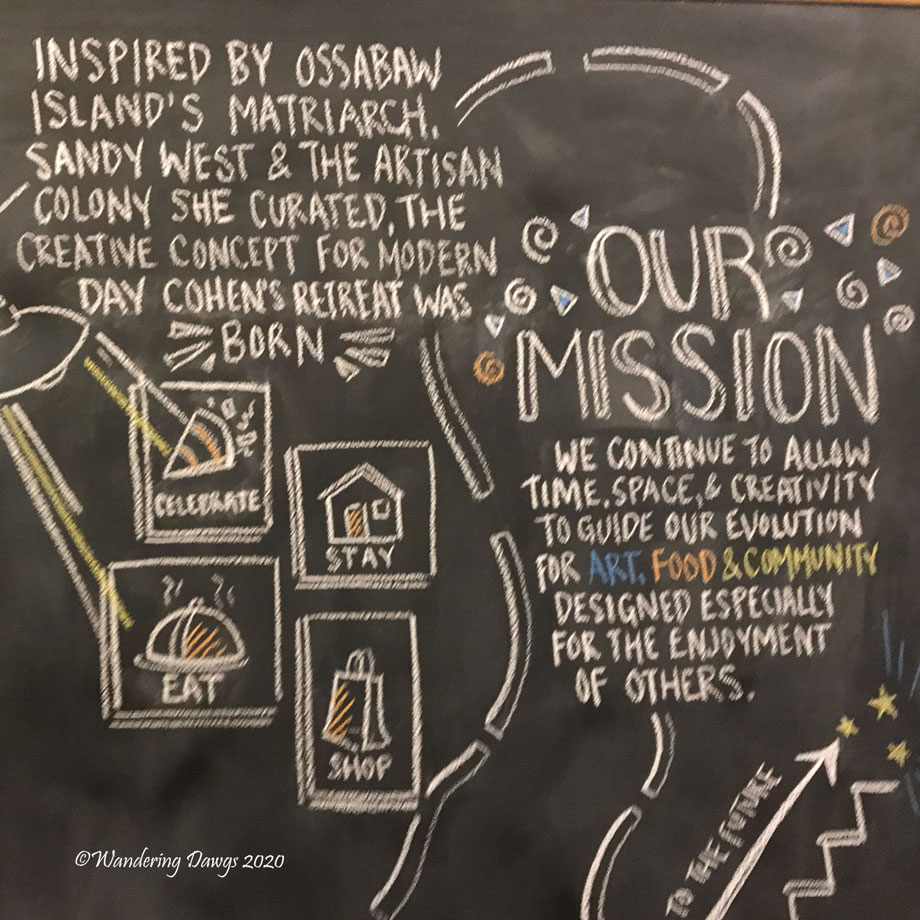 INSPIRED BY OSSABAW
ISLAND'S MATRIARCH,
SANDY WEST & THE ARTISAN
COLONY SHE CURATED, THE
CREATIVE CONCEPT FOR MODERN
DAY COHEN'S RETREAT WAS
BORN
CELEBRATE
STAY
EAT
SHOP
OUR
MISSION
WE CONTINUE TO ALLOW
TIME, SPACE, & CREATIVITY
TO GUIDE OUR EVOLUTION
FOR ART, FOOD & COMMUNITY
DESIGNED ESPECIALLY
FOR THE ENJOYMENT
OF OTHERS.
TO THE FUTURE
©Wandering Dawgs 2020